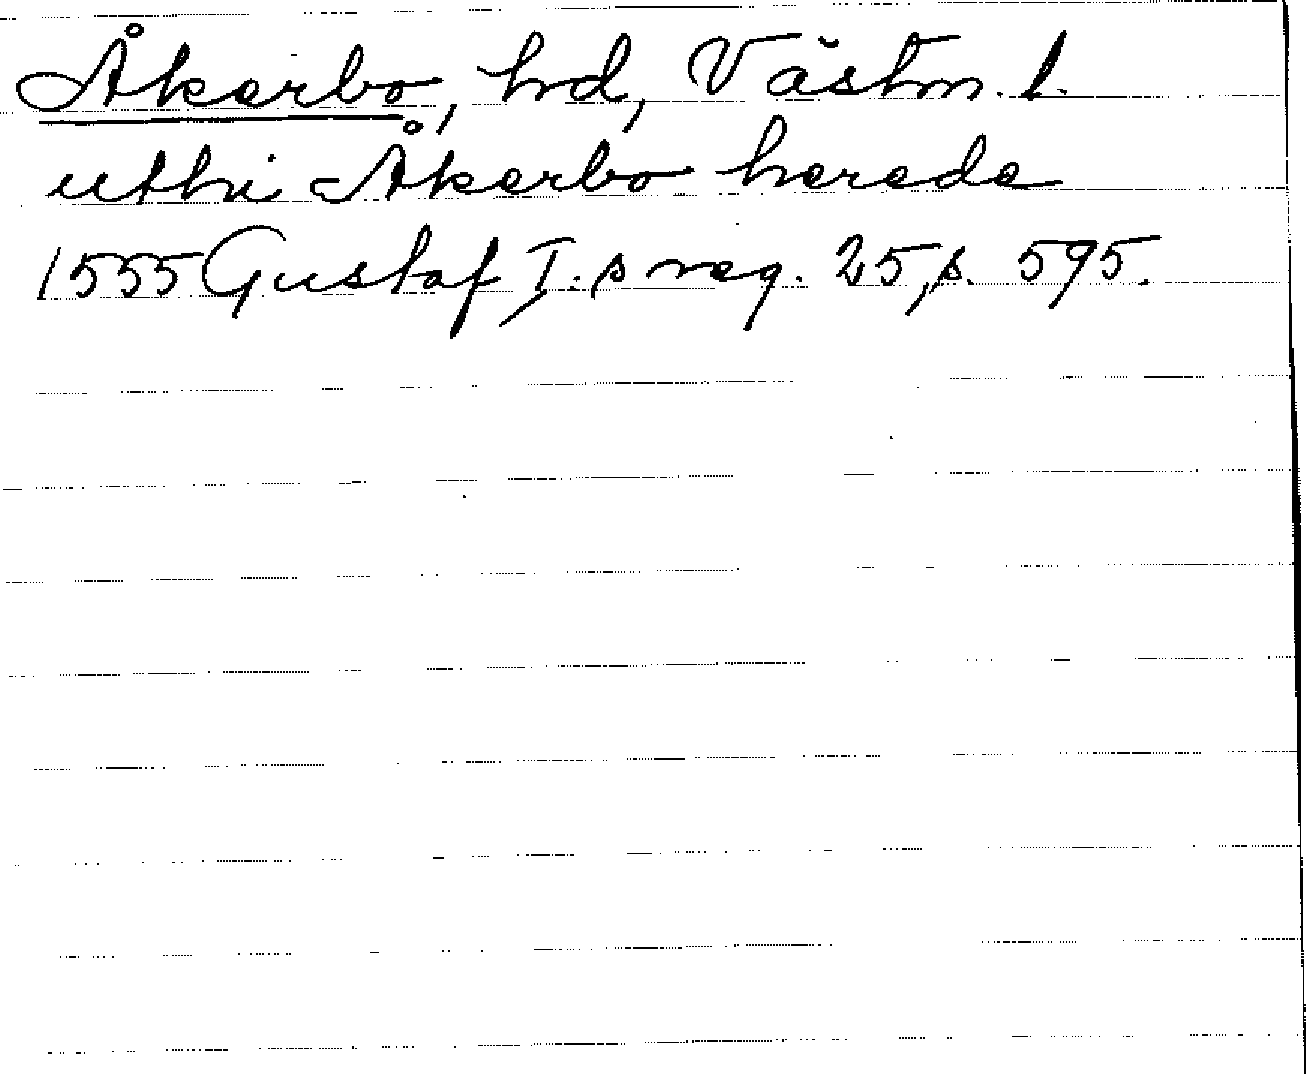 Åkerbo, hd, Västm. l.
uthi Åkerbo herede
1555 Gustaf I:s reg. 25, s. 595.